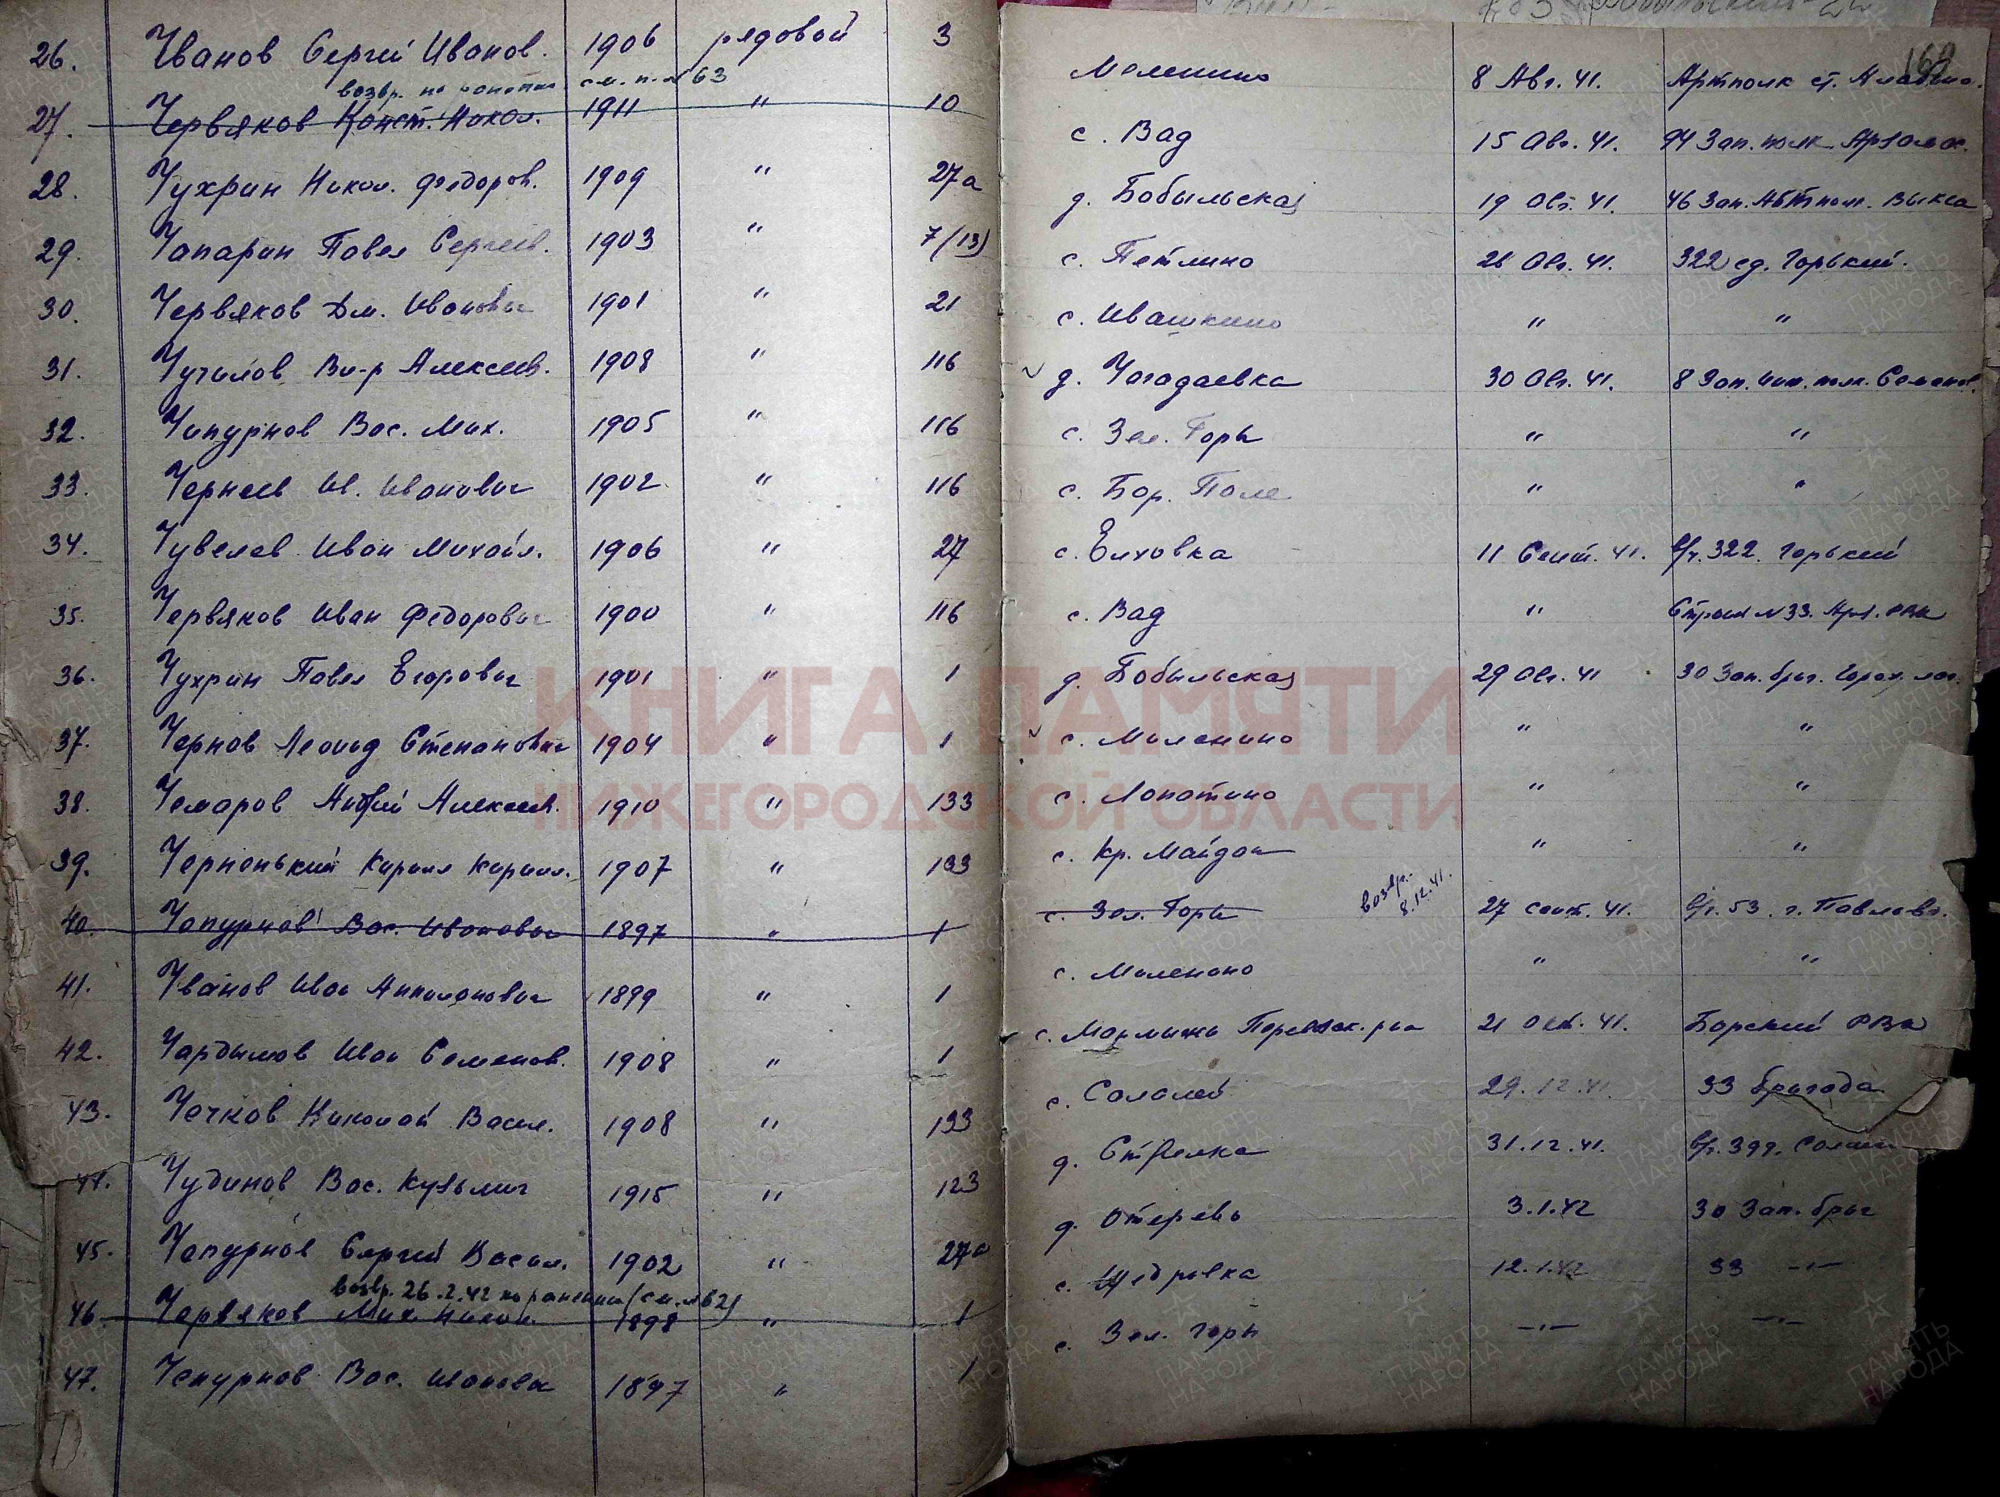 26. Чванов Сергей Иванов. 1906 рядовой 3 Меленино 8 Авг. 41. Артполк ст.
возвр. по см. п. № 63
27. Червяков Конст. Никол. 1911 " 10 с. Вад 15 Авг. 41. 94 Зап. полк Арзамас.
28. Чухрин Никол. Федоров. 1909 " 27а д. Бобыльская 19 Авг. 41. 46 Зап. полк. Выкса
29. Чапарин Павел Сергеев. 1903 " 7 (13) с. Петлино 26 Авг. 41. 322 сд. Горький.
30. Червяков Дм. Иванович 1901 " 21 с. Ивашкино " "
31. Чугилов Вл-р Алексеев. 1908 " 116 д. Чегодаевка 30 Авг. 41. 8 Зап. полк. Семенов.
32. Чепурнов Вас. Мих. 1905 " 116 с. Зел. Горы " "
33. Чернеев Ив. Иванович 1902 " 116 с. Бор. Поле " "
34. Чувелев Иван Михайл. 1906 " 27 с. Елховка 11 Сент. 41. в/ч. 322. Горький
35. Червяков Иван Федорович 1900 " 116 с. Вад " №33. РВК
36. Чухрин Павел Егорович 1901 " 1 д. Бобыльская 29 Авг. 41 30 Зап. бриг. Горох. лаг.
37. Чернов Леонид Степанович 1904 " 1 с. Меленино " "
38. Чемаров Андрей Алексеев. 1910 " 133 с. Лопатино " "
39. Черненький Кирилл Кирилл. 1907 " 133 с. Кр. Майдан " "
возвр.
8.12.41.
40. Чепурнов Вас. Иванович 1897 " 1 с. Зел. Горы 27 сент. 41. в/ч. 53. г. Павлово.
41. Чванов Иван 1899 " 1 с. Меленино " "
42. Чардымов Иван Семенов. 1908 " 1 с. Перевозск. р-на 21 Окт. 41. Борский РВК
43. Чечков Николай Васил. 1908 " 133 с. Салалей 29.12.41. 33 бригада
44. Чудинов Вас. Кузьмич 1915 " 123 д. Стрелка 31.12.41. в/ч.
45. Чепурнов Сергей Васил. 1902 " 27а д. Отерево 3.1.42 30 Зап. бриг
возвр. 26.2.42 по ранению (см. №62)
46. Червяков Мих. Никол. 1898 " 1 с. Щедровка 12.1.42 33 —"—
47. Чепурнов Вас. Иванович 1897 " 1 с. Зел. Горы —"— —"—
КНИГА ПАМЯТИ
НИЖЕГОРОДСКОЙ ОБЛАСТИ
ПАМЯТЬ НАРОДА